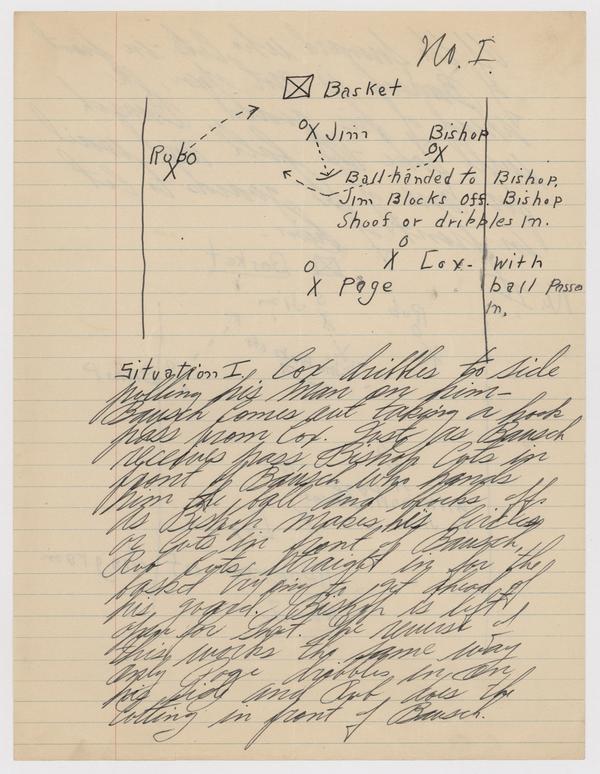 No. I.
Basket
Jim
Bishop
Rubo
Ball-handed to Bishop.
Jim Blocks off. Bishop
Shoot or dribbles In.
Cox - with
ball Passes
In.
Page
Situation I. Cox dribbles to side
pulling his man on him -
Bausch comes out taking a hook
pass from Cox. Just as Bausch
receives pass, Bishop Cuts in
front of Bausch who hands
him the ball and blocks off
As Bishop makes his
or Cuts in front of Bausch,
Rub cuts straight in for the
basket trying to get ahead of
his guard. Bishop is left
open for shot. The reverse of
this works the same way
only Page dribbles in on
his side and Rub does the
Cutting in front of Bausch.